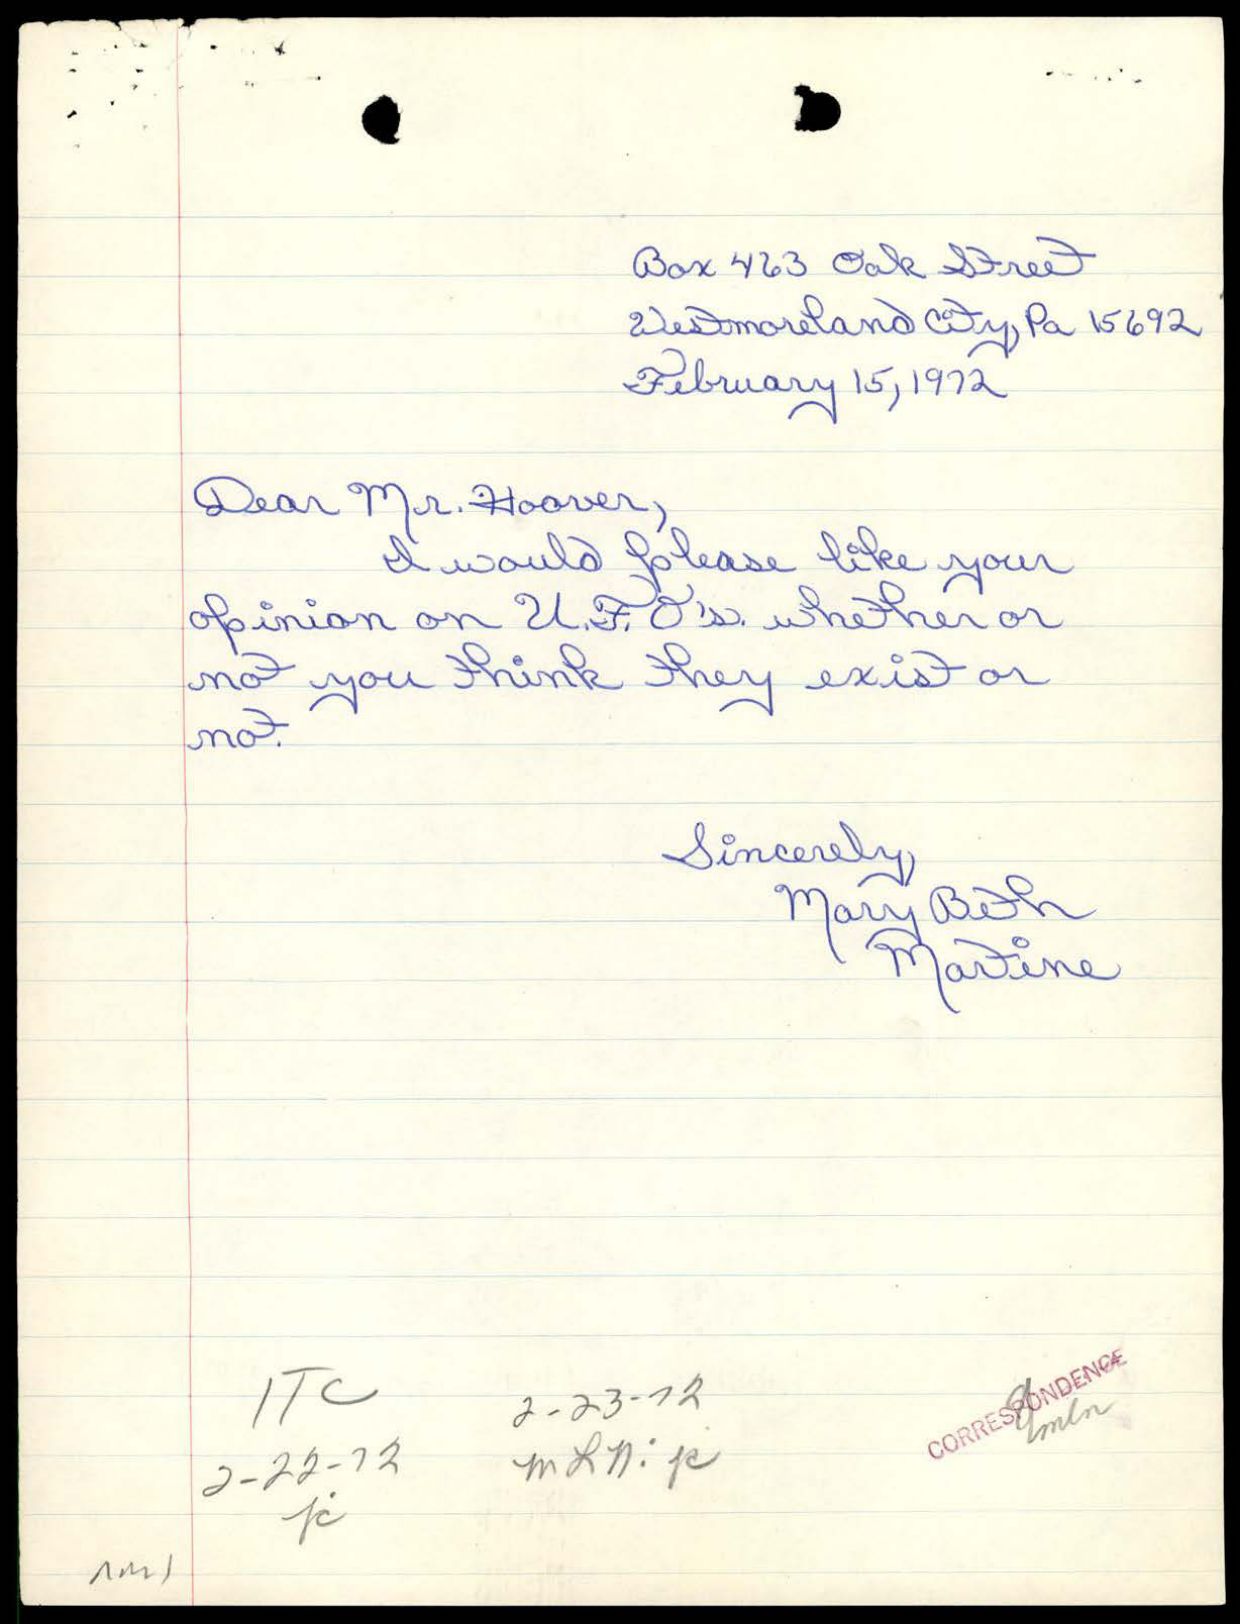 Box 463 Oak Street
Westmoreland City, Pa 15692
February 15, 1972
Dear Mr. Hoover,
I would please like your
opinion on U.F.O's. whether or
not you think they exist or
not.
Sincerely,
Mary Beth
Martine
ITC
2-22-72
2-23-72
CORRESPONDENCE